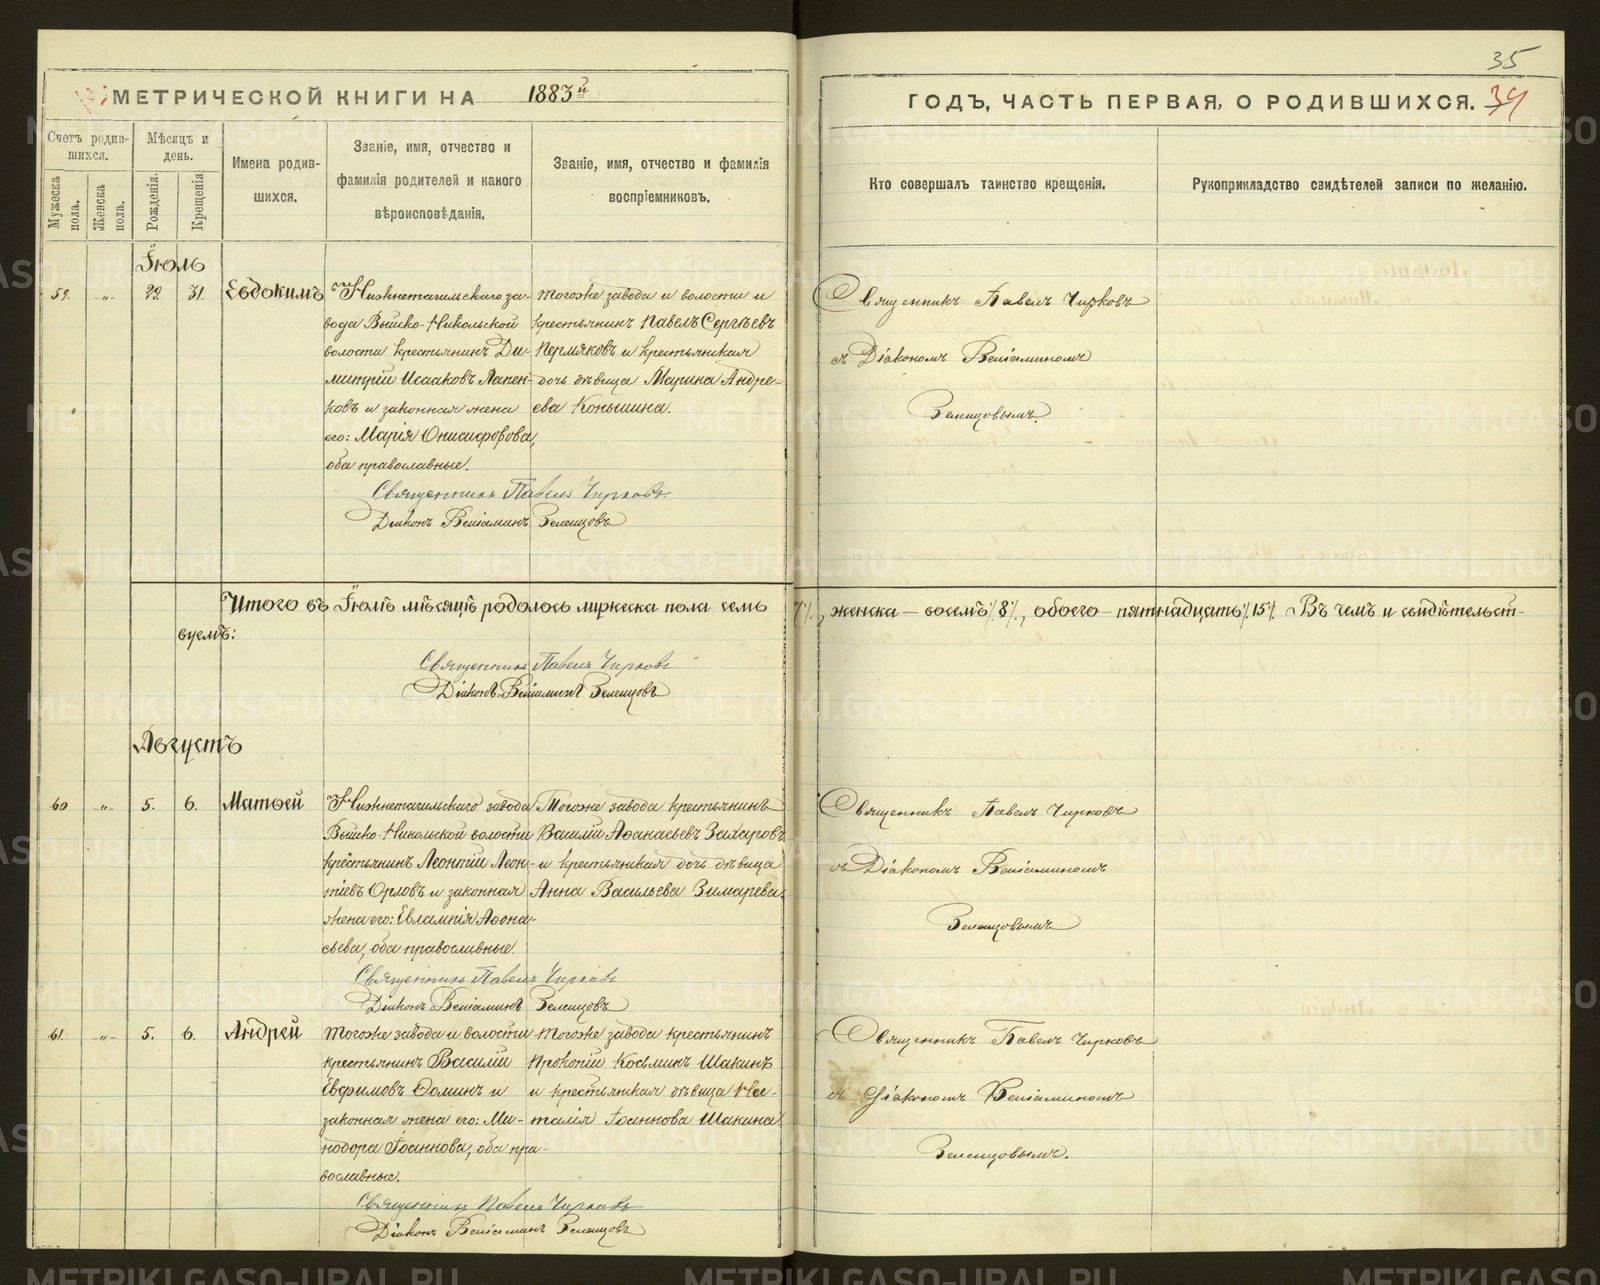 35
МЕТРИЧЕСКОЙ КНИГИ НА 1883й
ГОДЪ, ЧАСТЬ ПЕРВАЯ, О РОДИВШИХСЯ. 34
Счетъ родив-
шихся.
Мужеска пола.
Женска пола.
Мѣсяцъ и
день.
Рожденія.
Крещенія
Имена родив-
шихся.
Званіе, имя, отчество и
фамилія родителей и какого
вѣроисповѣданія.
Званіе, имя, отчество и фамилія
воспріемниковъ.
Кто совершалъ таинство крещенія.
Рукоприкладство свидѣтелей записи по желанію.
Іюль
59. „ 29. 31. Евдокимъ
Нижнетагильскаго за-
вода Выйско-Никольской
волости крестьянинъ Ди-
митрій Исааковъ Лапен-
ковъ и законная жена
его: Марія Онисифорова,
оба православные.
тогоже завода и волости и
крестьянинъ Павелъ Сергѣевъ
Пермяковъ и крестьянская
дочь дѣвица Марина Андре-
ева Конышина.
Священникъ Павелъ Чирковъ
Діаконъ Веніаминъ Зеленцовъ
Священникъ Павелъ Чирковъ
съ Діакономъ Веніаминомъ
Зеленцовымъ.
Итого въ Іюлѣ мѣсяцѣ родилось мужеска пола семь 7%, женска — восемь % 8 %, обоего — пятнадцать % 15 %. Въ чемъ и свидѣтельст-
вуемъ:
Священникъ Павелъ Чирковъ
Діаконъ Веніаминъ Зеленцовъ
Августъ
60 „ 5. 6. Матѳей
Нижнетагильскаго завода
Выйско-Никольской волости
крестьянинъ Леонтій Леон-
тіевъ Орловъ и законная
жена его: Евлампія Аѳона-
сьева, оба православные.
Тогоже завода крестьянинъ
Василій Аѳанасьевъ Захаровъ
и крестьянская дочь дѣвица
Анна Васильева Зимарева.
Священникъ Павелъ Чирковъ
Діаконъ Веніаминъ Зеленцовъ
Священникъ Павелъ Чирковъ
съ Діакономъ Веніаминомъ
Зеленцовымъ
61. „ 5. 6. Андрей
Тогоже завода и волости
крестьянинъ Василій
Евфимовъ Ѳоминъ и
законная жена его: Ми-
нодора Іоаннова, оба пра-
вославные.
Тогоже завода крестьянинъ
Прокопій Косьминъ Шакинъ
и крестьянская дѣвица На-
талія Іоаннова Шакина
Священникъ Павелъ Чирковъ
Діаконъ Веніаминъ Зеленцовъ
Священникъ Павелъ Чирковъ
съ Діакономъ Веніаминомъ
Зеленцовымъ.
METRIKI.GASO-URAL.RU